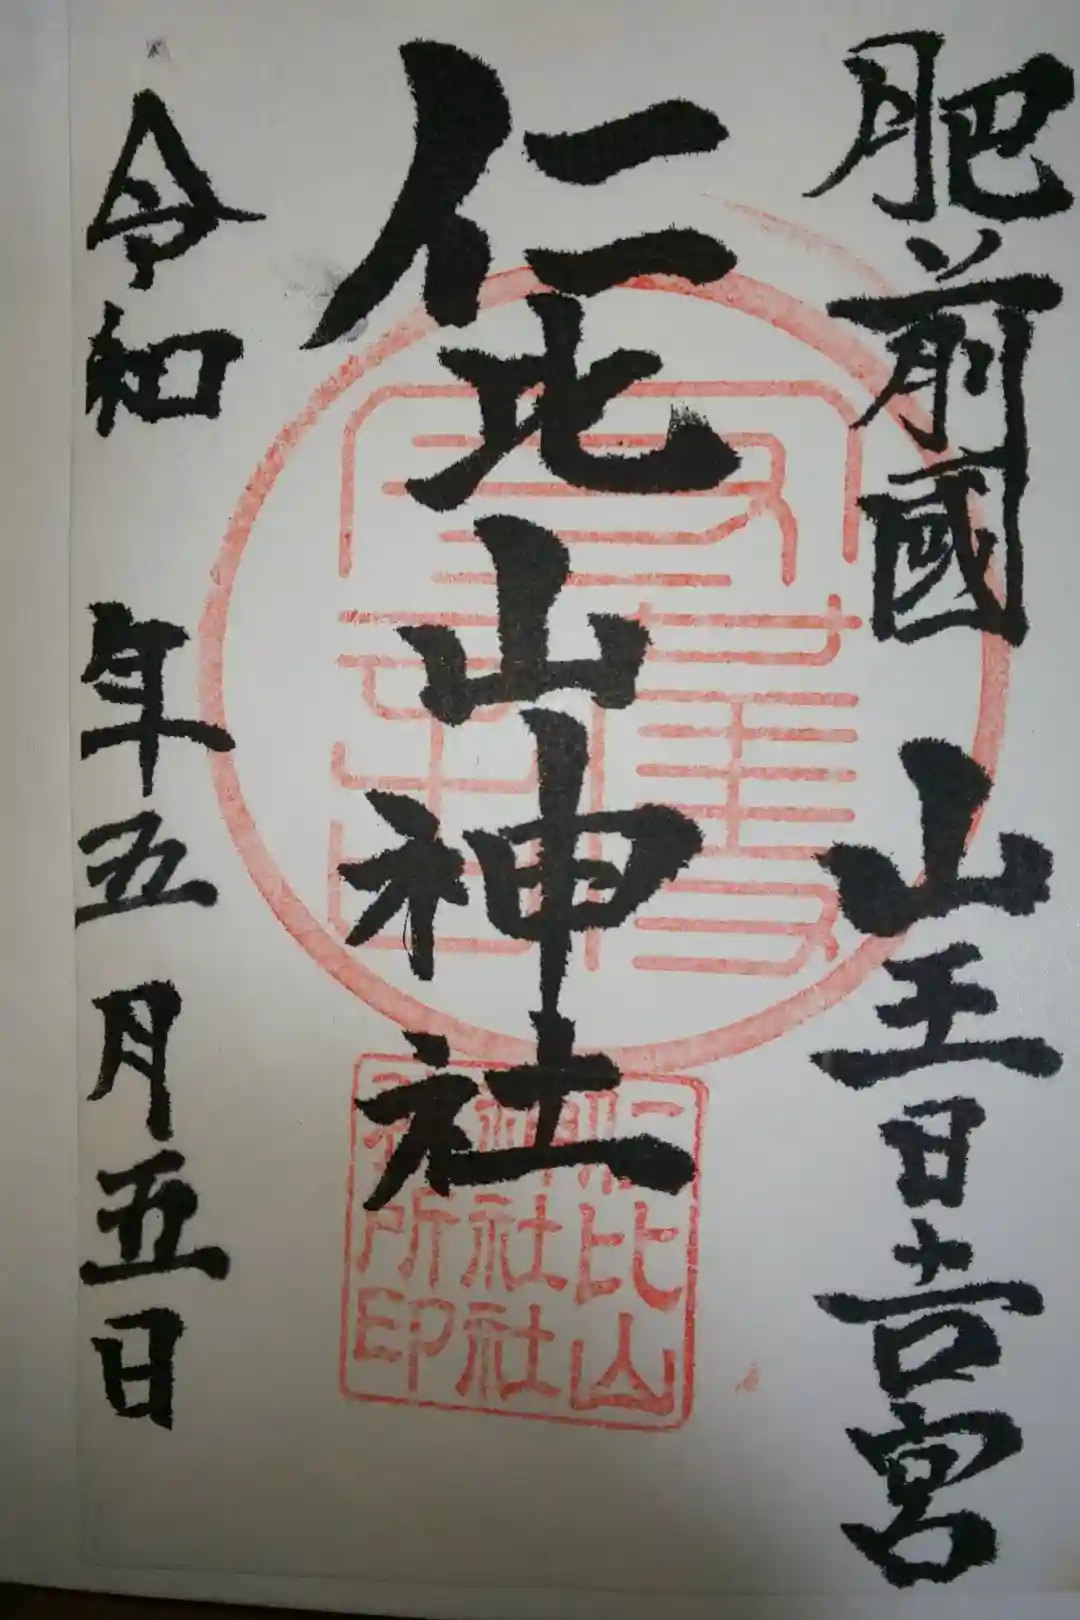 肥前國 山王日吉宮
仁比山神社
令和 年五月五日
仁比山
神社社
務所印